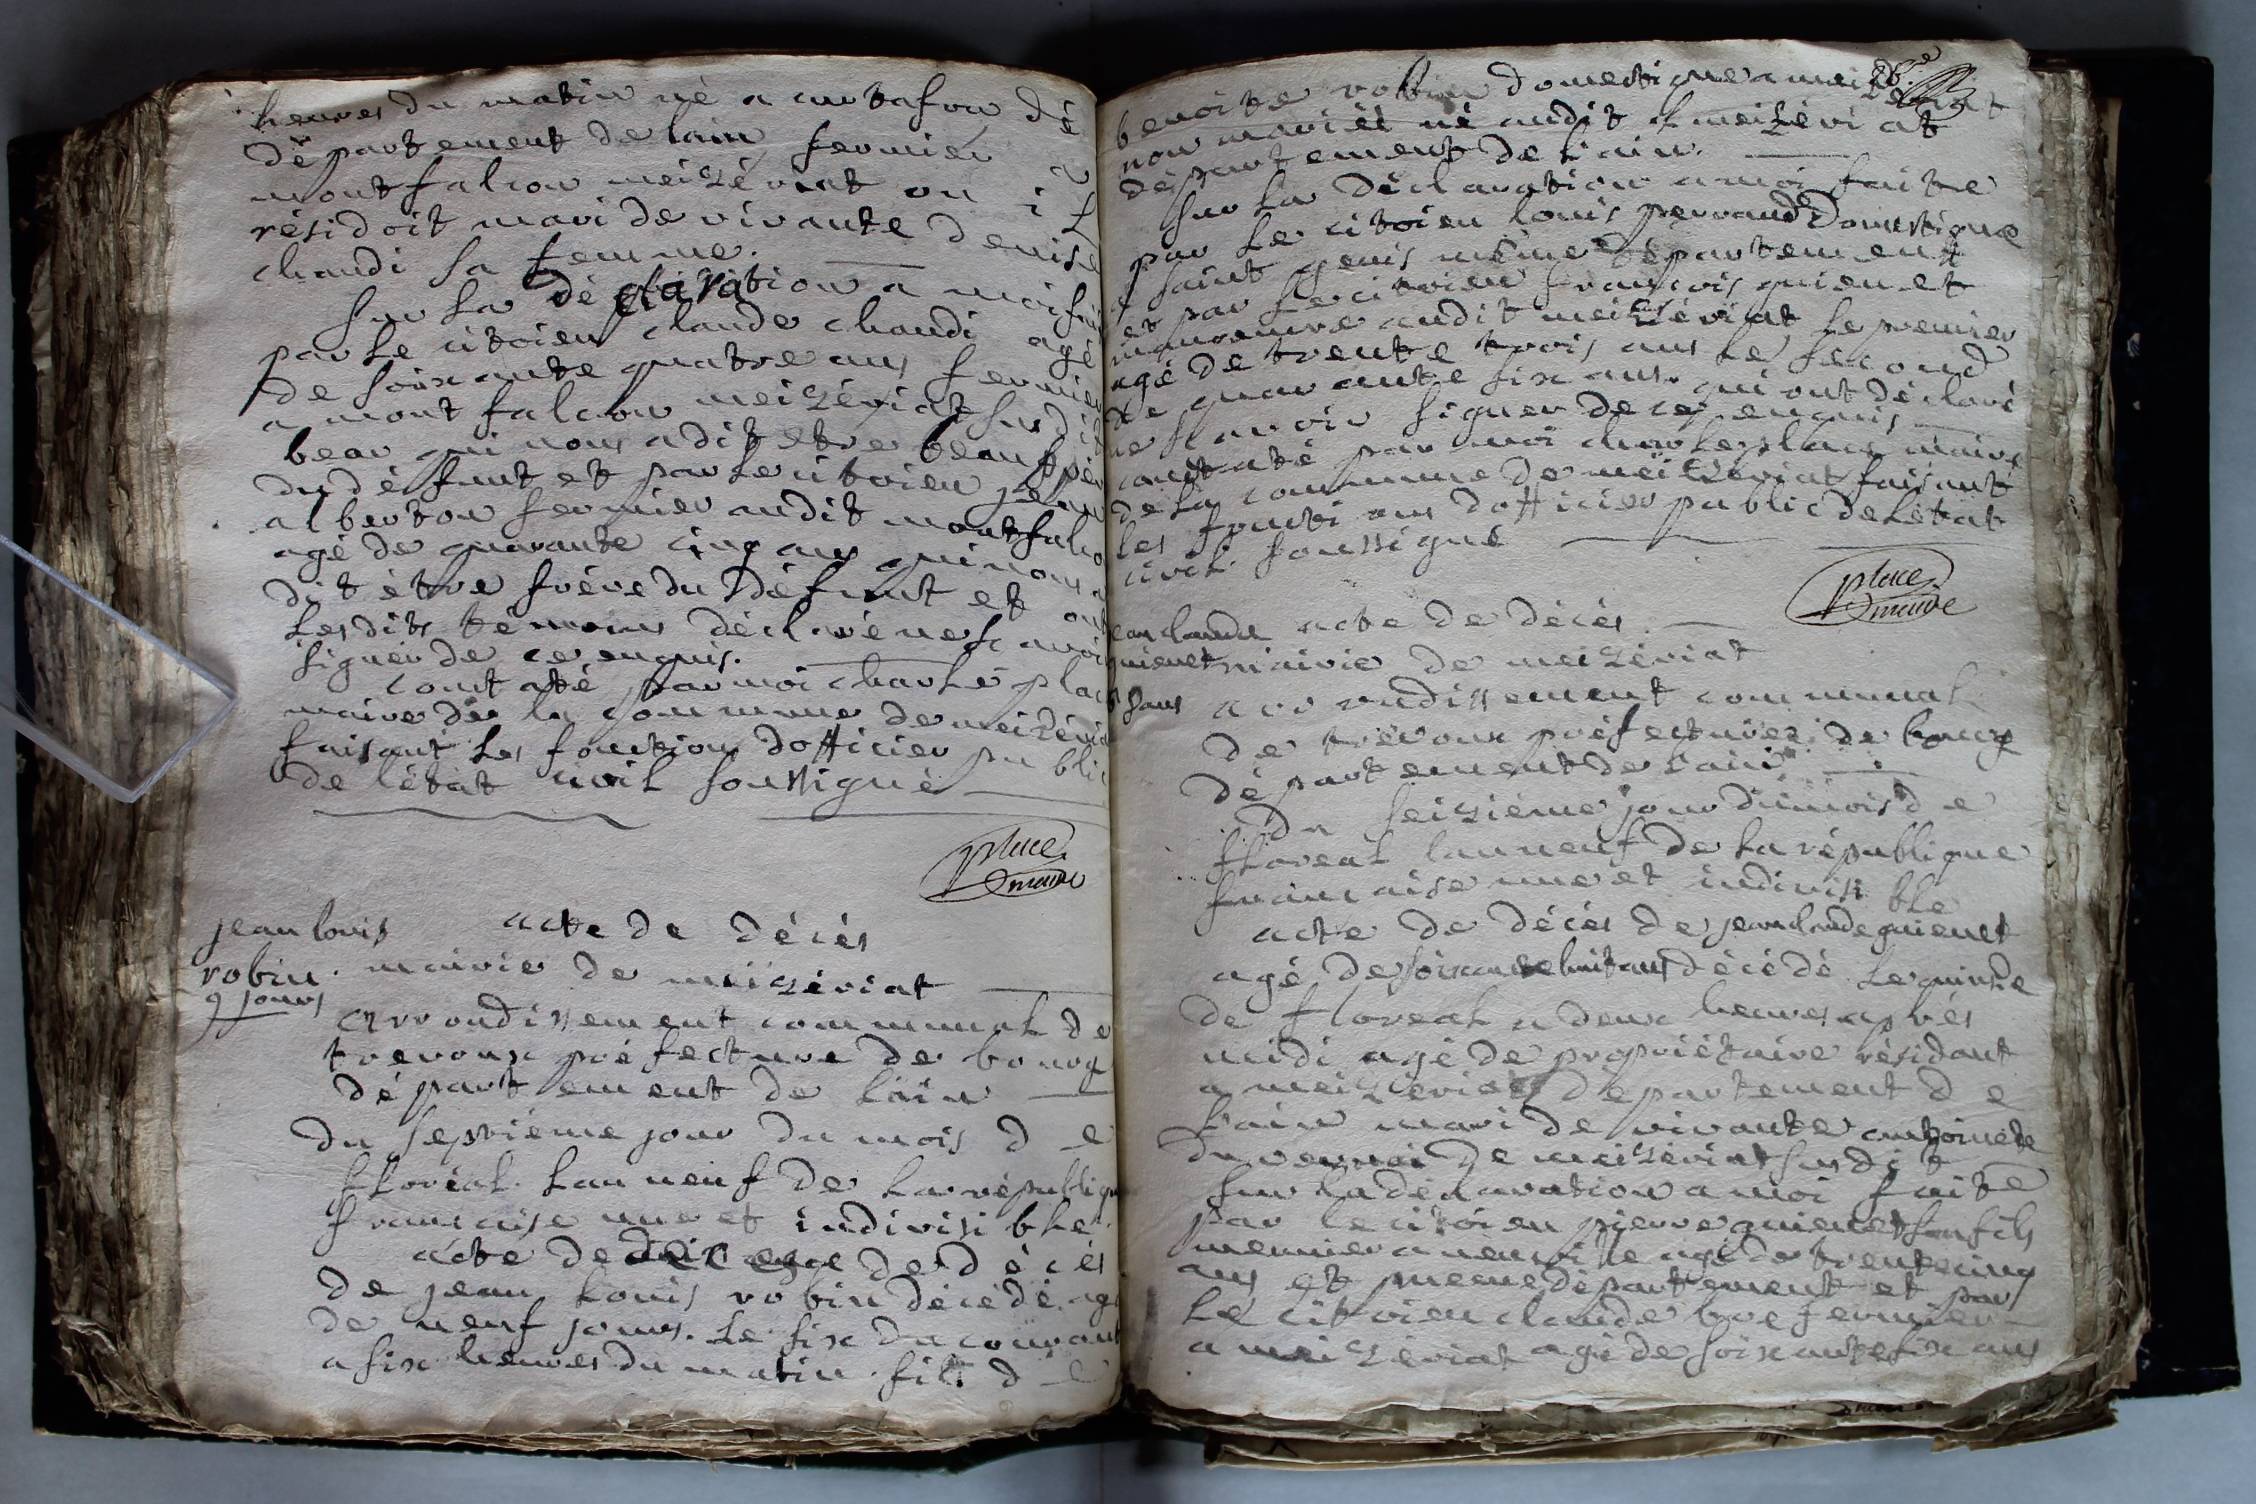 heures du matin né a
département de lain fermier a
montfalcon meizériat ou il
résidoit mari de vivante denise
chaudi sa femme.
sur la déclaration a moi fai
par le citoien claude chaudi agé
de soixante quatre ans fermier
a mont falcon meizériat susdit
beau qui nous a dit etre beaupèr
du défunt et par le citoien jean
alberton fermier audit montfalco
agé de quarante cinq ans qui nous a
dit étre frére du défunt et ont
lesdits témoins déclaré ne scavoir
signer de ce enquis.
constaté par moi charle place
maire de la commune de meizéria
faisant les fonction dofficier public
de létat civil soussigné
place
maire
jean louis
robin
9 jours
acte de décés
mairie de meizériat
arrondissement communal de
trevoux préfecture de bourg
département de lain
du septiéme jour du mois de
floréal lan neuf de la républiqu
francaise une et indivisible
acte de de décés
de jean louis robin décédé agé
de neuf jours. le six du courant
a six heures du matin. fils de
benoite robin domestique a meizériat
non mariée né audit meizériat
département de lain.
sur la déclaration a moi faite
par le citoien louis perraud domestique
a saint genis même département
et par le citoien francois guienet
manoeuvre audit meizériat le premier
agé de trente trois ans le second
de quarante six ans. qui ont déclaré
ne scavoir signer de ce enquis
constaté par moi charle place maire
de la commune de meizériat faisant
les fonctions dofficier public de létat
civil soussigné
place
maire
jean claude
guienet
68 ans
acte de décés
mairie de meizériat
arrondissement communal
de trévoux préfecture de bourg
département de lain
du seiziéme jour du mois de
floreal lan neuf de la république
francaise une et indivisible
acte de décés de jean claude guienet
agé de soixante huit ans décédé le quinze
de floreal a deux heures aprés
midi agé de propriétaire résidant
a meizieriat département de
lain mari de vivante antoinete
duvernai de meizeriat susdit
sur la déclaration a moi faite
par le citoien pierre guienet son fils
meunier a neuville agé de trente cinq
ans et meme département et par
le citoien claude boe fermier
a meizeriat agé de soixante six ans